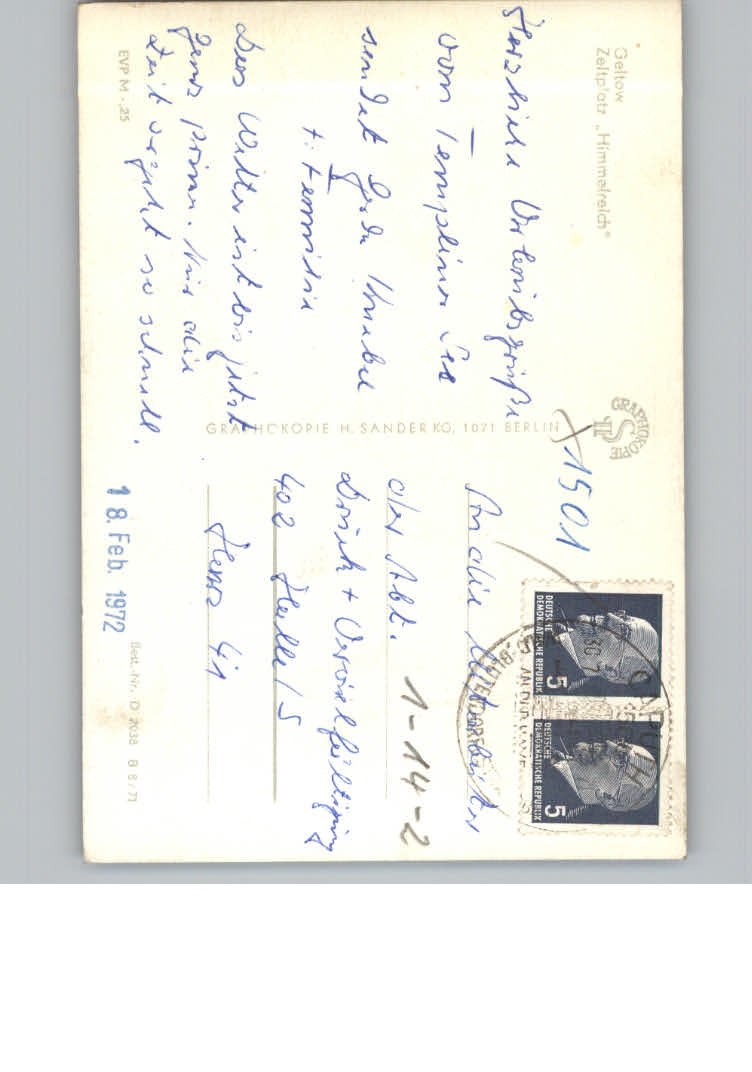 Geltow
Zeltplatz „Himmelreich"
Herzliche Urlaubsgrüße
vom Templiner See
sendet Gerda
+ Familie
Das Wetter ist bis jetzt
ganz prima. Nur die
Zeit vergeht so schnell.
EVP M -,25
GRAPHOKOPIE H. SANDER KG, 1071 BERLIN
GRAPHOKOPIE
1501
An die Mitarbeiter
der Abt.
1-14-2
Druck + Vervielfältigung
402 Halle / S
Haus 41
18. Feb. 1972
Best.-Nr. D 2038 B 8/71
DEUTSCHE
DEMOKRATISCHE REPUBLIK
5
DEUTSCHE
DEMOKRATISCHE REPUBLIK
5
CAPUTH